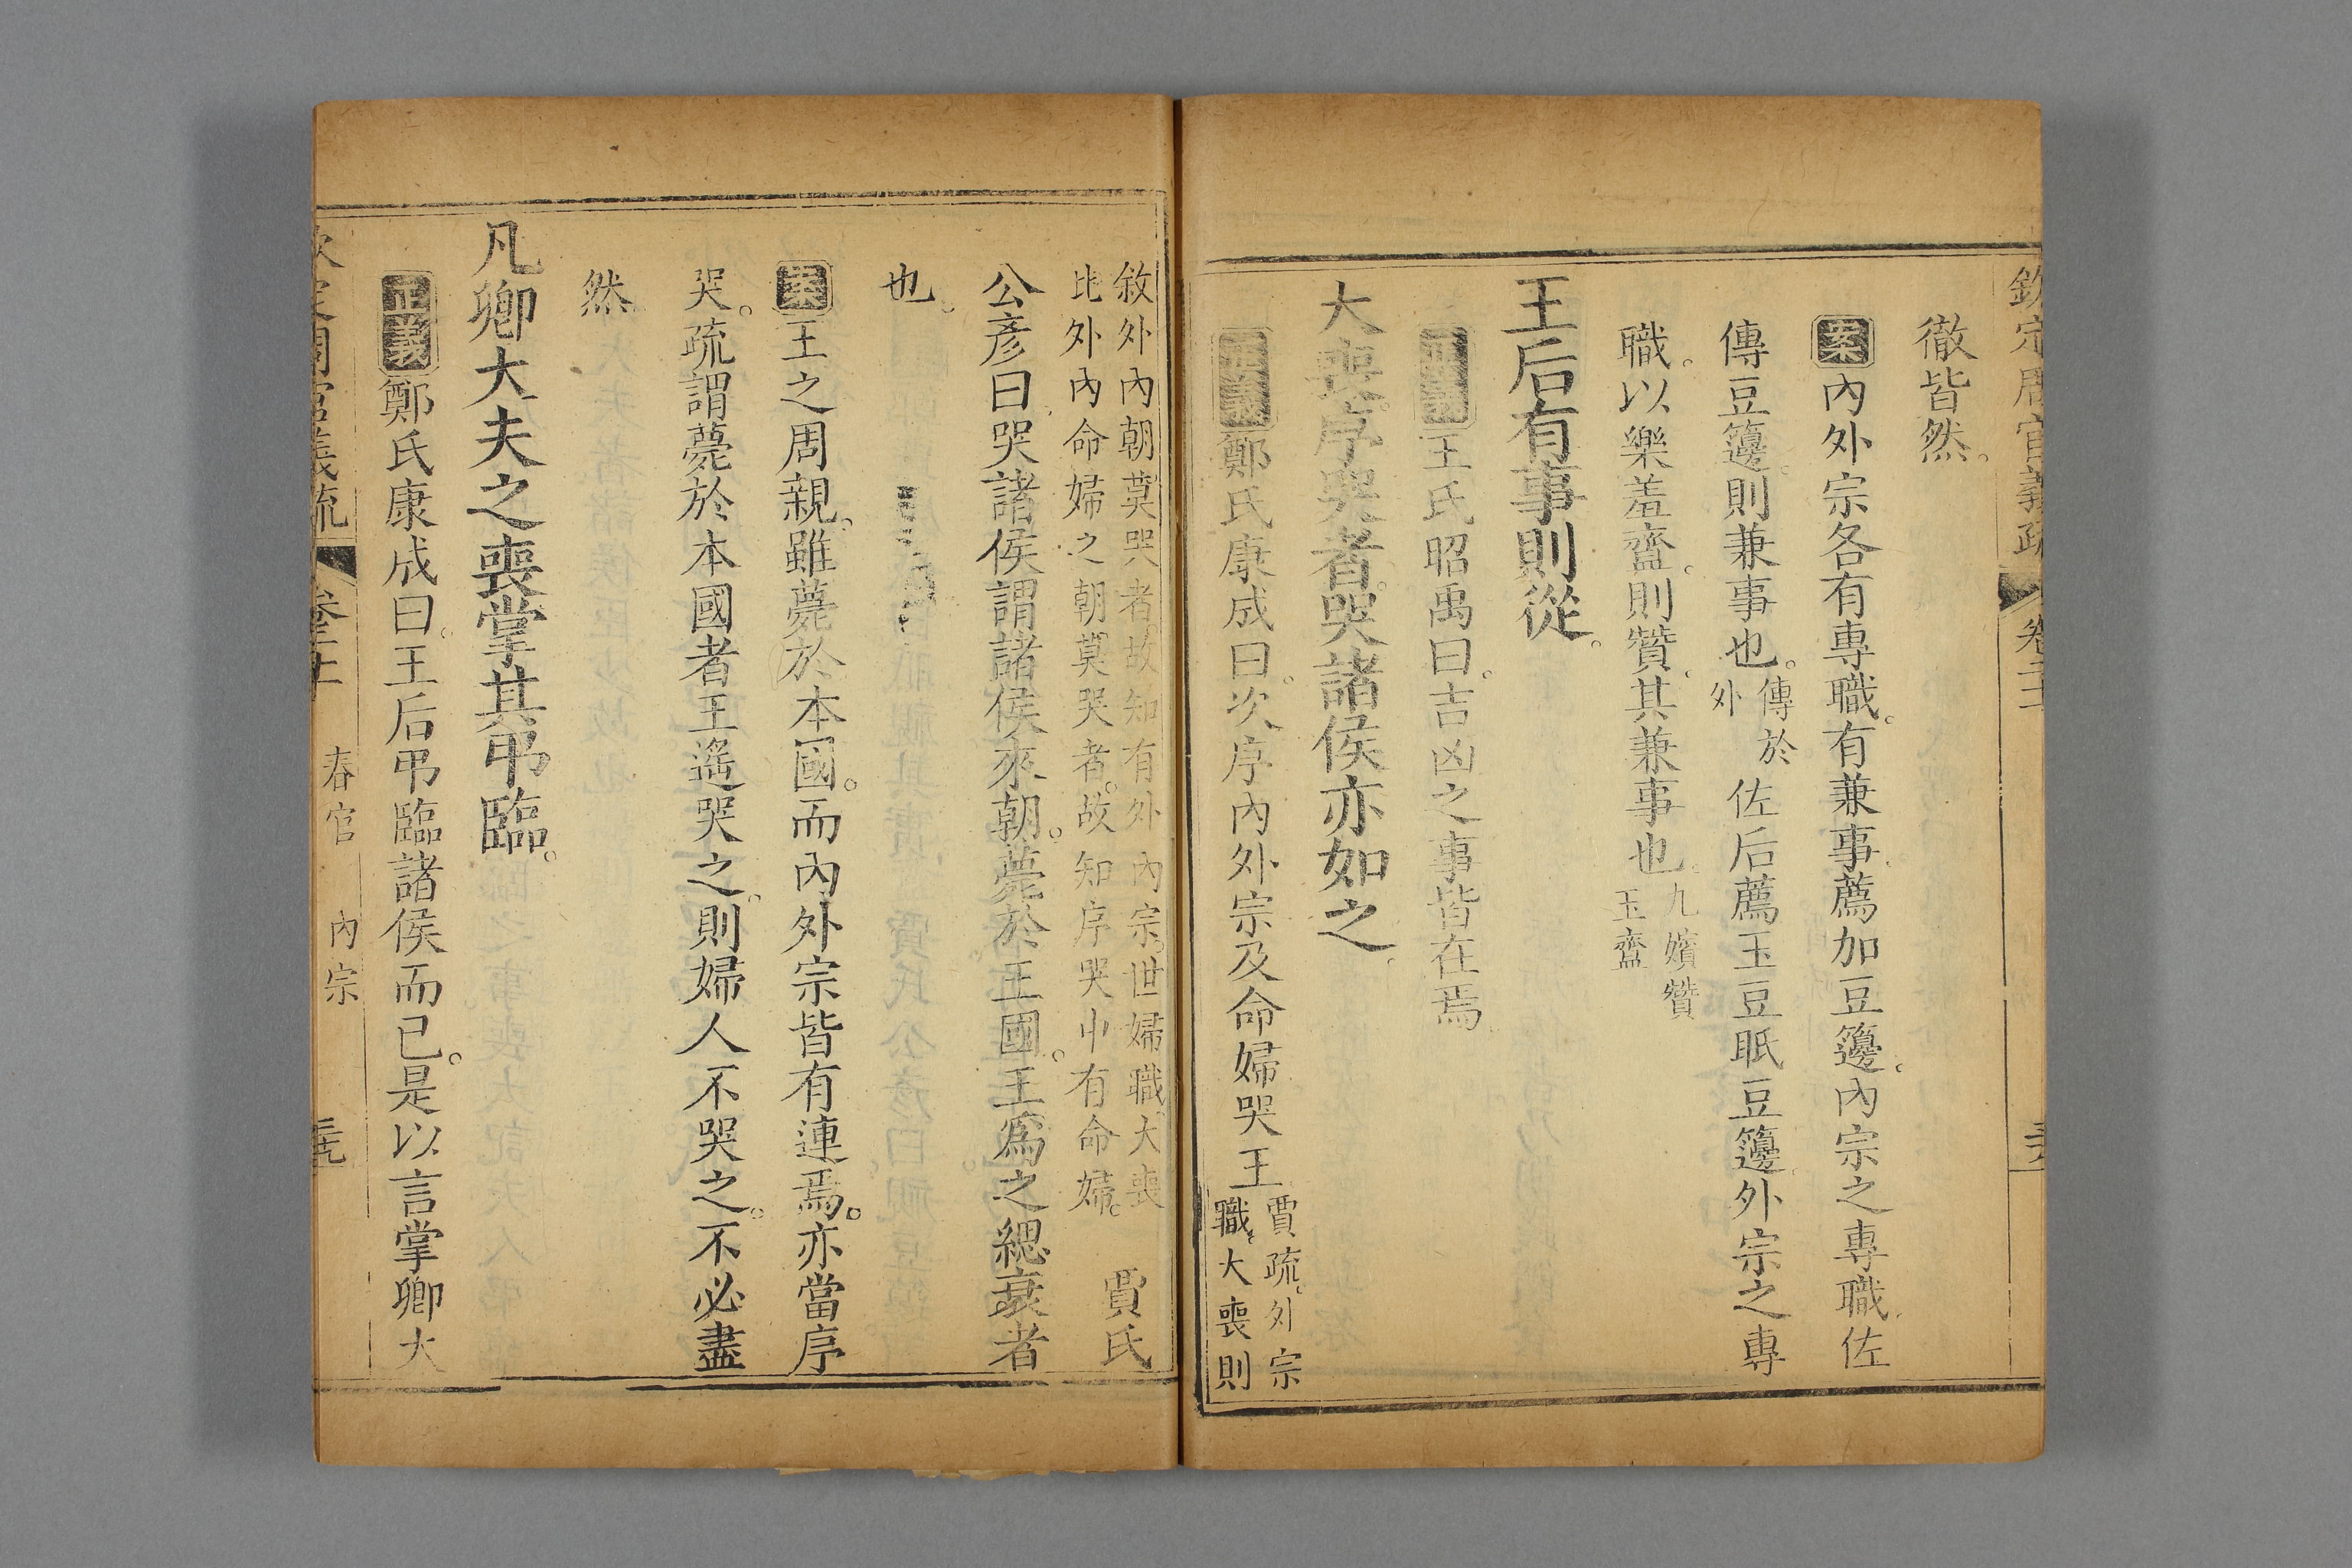 欽定周官義疏 卷二十
徹皆然。
案內外宗各有專職。有兼事。薦加豆籩。內宗之專職。佐
傳豆籩。則兼事也。傳於外佐后薦玉豆眡豆籩。外宗之專
職。以樂羞齍。則贊。其兼事也。九嬪贊玉齍
王后有事則從。
正義王氏昭禹曰。吉凶之事皆在焉
大喪序哭者。哭諸侯亦如之。
正義鄭氏康成曰。次序內外宗及命婦哭王賈疏。外宗職。大喪則
敘外內朝莫哭者。故知有外內宗。世婦職。大喪
比外內命婦之朝莫哭者。故知序哭中有命婦。賈氏
公彥曰。哭諸侯。謂諸侯來朝。薨於王國。王爲之緦衰者
也。
案王之周親。雖薨於本國。而內外宗皆有連焉。亦當序
哭。疏謂薨於本國者王遙哭之。則婦人不哭之。不必盡
然
凡卿大夫之喪掌其弔臨。
正義鄭氏康成曰。王后弔臨諸侯而已。是以言掌卿大
欽定周官義疏 卷二十 春官 內宗 三十九